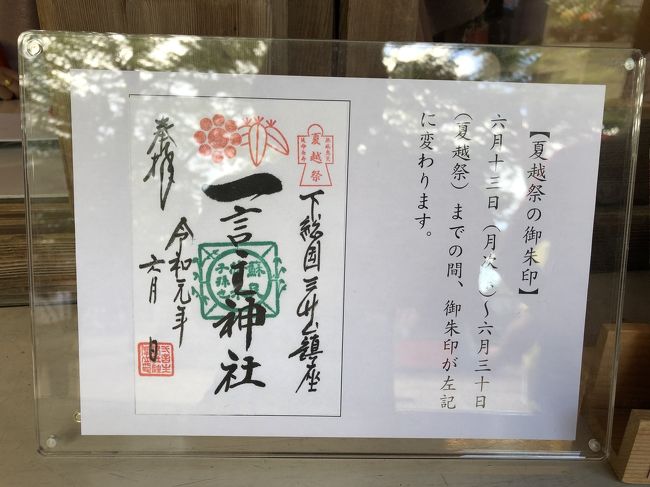 【夏越祭の御朱印】
六月十三日（月次　）～六月三十日
（夏越祭）までの間、御朱印が左記
に変わります。
夏越祭
下総国三竹山鎮座
一言主神社
奉拝
令和元年
六月　日